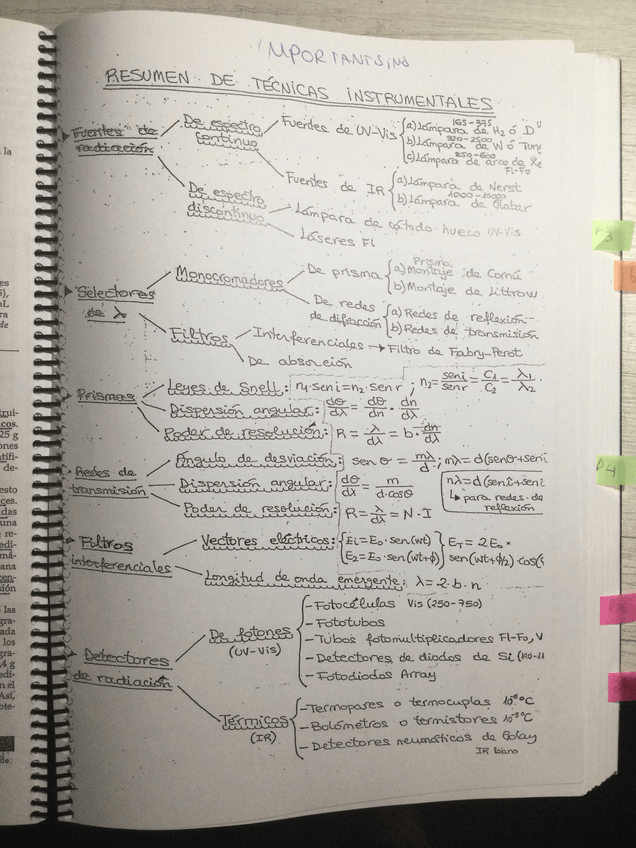 IMPORTANTSIMO
RESUMEN DE TÉCNICAS INSTRUMENTALES
Fuentes de radiación
De espectro continuo
Fuentes de UV-Vis
165-375
a) Lámpara de H2 ó D
b) Lámpara de W ó Tun
250-600
c) Lámpara de arco de Xe
Fl-Fo
Fuentes de IR
a) Lámpara de Nerst
b) Lámpara de Globar
De espectro discontinuo
Lámpara de cátodo hueco UV-Vis
Láseres Fl
Selectores de λ
Monocromadores
De prisma
Prisma
a) Montaje de Cornú
b) Montaje de Littrow
De redes de difracción
a) Redes de reflexión
b) Redes de transmisión
Filtros
Interferenciales → Filtro de Fabry-Perot
De absorción
Prismas
Leyes de Snell: n1·sen i = n2·sen r ; n2 = sen i/sen r = C1/C2 = λ1/λ2
Dispersión angular: dθ/dλ = dθ/dn · dn/dλ
Poder de resolución: R = λ/dλ = b· dn/dλ
Redes de transmisión
Ángulo de desviación: sen θ = mλ/d ; mλ = d(senθ+sen i
Dispersión angular: dθ/dλ = m/d·cosθ
nλ = d(sen i + sen
↳ para redes de reflexión
Poder de resolución: R = λ/dλ = N·I
Filtros interferenciales
Vectores eléctricos: E1=E0·sen(wt)
E2=E0·sen(wt+ϕ)
ET = 2E0×
sen(wt+ϕ/2)·cos(
Longitud de onda emergente: λ = 2·b·n
Detectores de radiación
De fotones (UV-Vis)
- Fotocélulas Vis (250-750)
- Fototubos
- Tubos fotomultiplicadores Fl-Fo, V
- Detectores de diodos de Si
- Fotodiodos Array
Térmicos (IR)
- Termopares o termocuplas
- Bolómetros o termistores
- Detectores neumáticos de Golay
IR